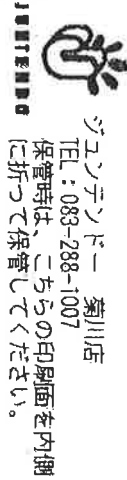 JUNTENDO
ジュンテンドー 菊川店
TEL:083-288-1007
保管時は、こちらの印刷面を内側
に折って保管してください。